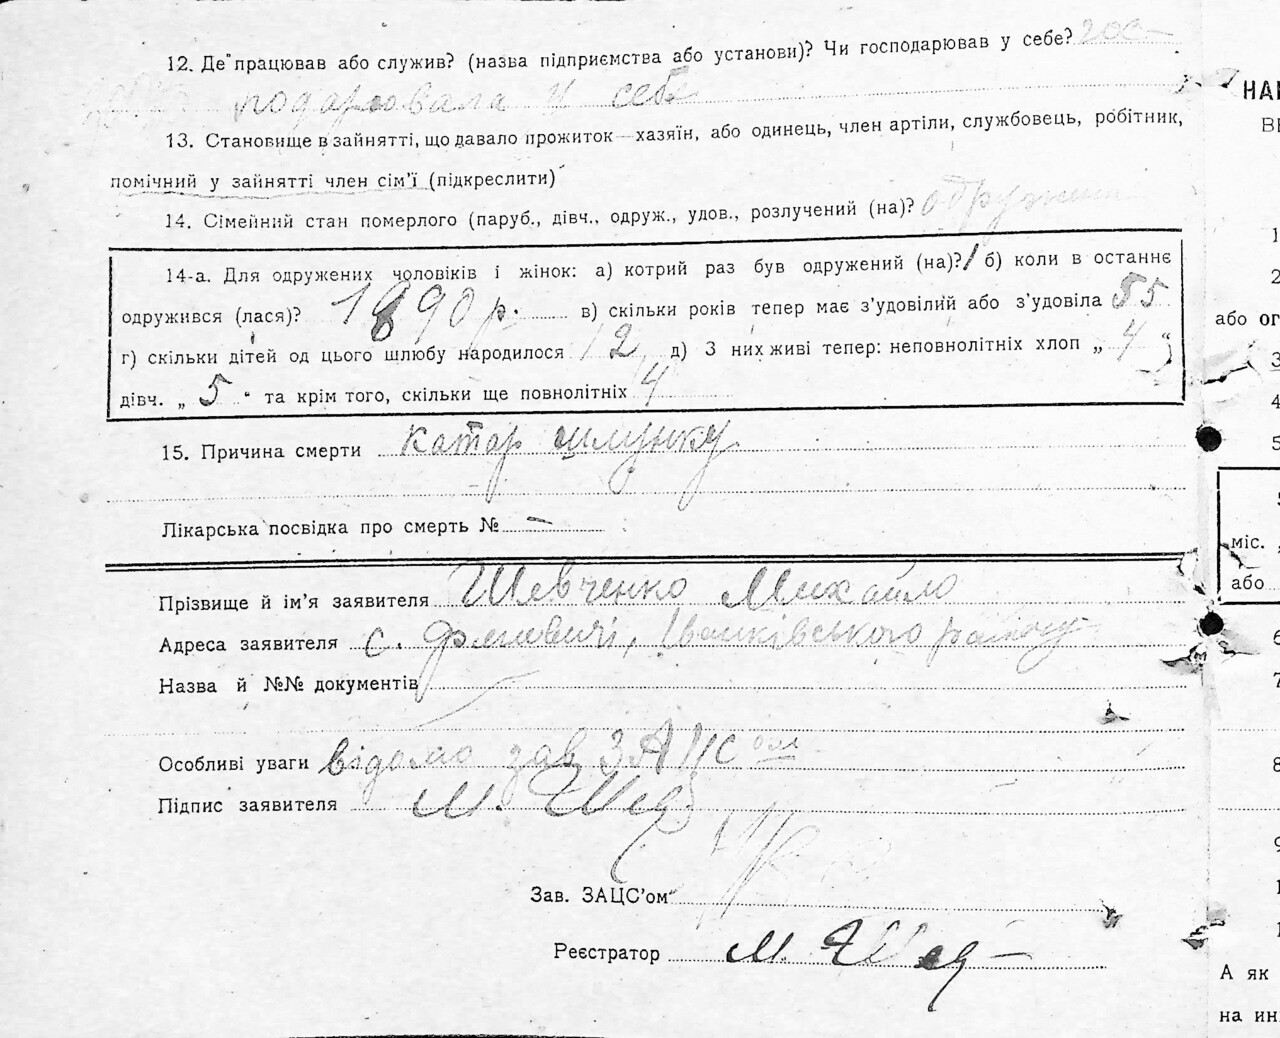 12. Де працював або служив? (назва підприємства або установи)? Чи господарював у себе? гос-
подарювала у себе
13. Становище в зайнятті, що давало прожиток—хазяїн, або одинець, член артіли, службовець, робітник,
помічний у зайнятті член сім'ї (підкреслити)
14. Сімейний стан померлого (паруб., дівч., одруж., удов., розлучений (на)? одружена
14-а. Для одружених чоловіків і жінок: а) котрий раз був одружений (на)? 1 б) коли в останнє
одружився (лася)? 1890 р. в) скільки років тепер має з'удовілий або з'удовіла 55
г) скільки дітей од цього шлюбу народилося 12 д) З них живі тепер: неповнолітніх хлоп „ 4 "
дівч. „ 5 " та крім того, скільки ще повнолітніх 4
15. Причина смерти катар шлунку
Лікарська посвідка про смерть № —
Прізвище й ім'я заявителя Шевченко Михайло
Адреса заявителя с. Іванківського району
Назва й №№ документів
Особливі уваги відомо зав ЗАЦС ом
Підпис заявителя М. Шев
Зав. ЗАЦС'ом
Реєстратор М.
НА
1
2
або ог
3
4
5
міс. „
або
6
7
8
9
1
1
А як
на ин